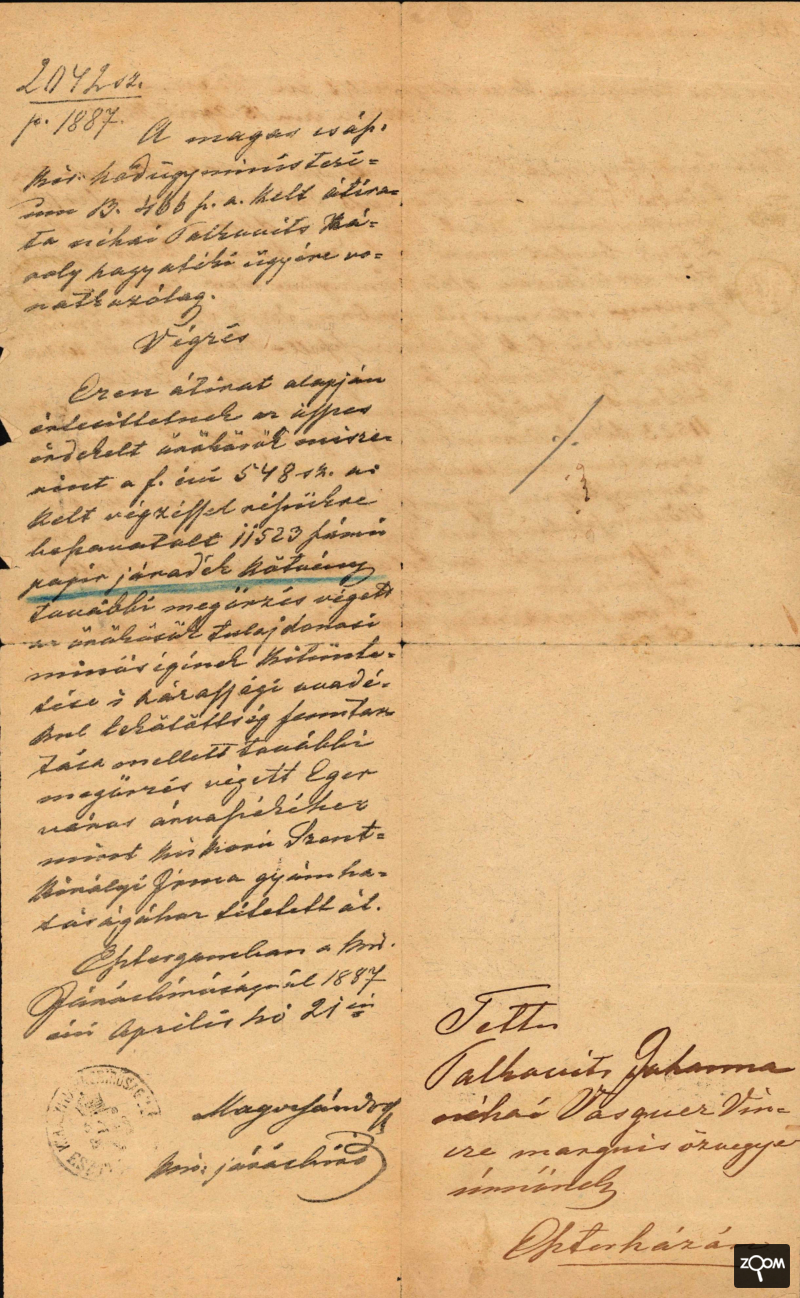 2042 sz.
p. 1887.
A magas csász.
kir. hadügyministeri-
um B. 466 p. a. kelt átira-
ta néhai Talkovits Ká-
roly hagyatéki ügyére vo-
natkozólag.
Végzés
Ezen átirat alapján
értesittetnek az összes
érdekelt örökösök misze-
rint a f. évi 548 sz. a.
kelt végzéssel részükre
11523 számú
papir járadék kötvény
további megőrzés végett
az örökösök tulajdonosi
minőségének kitünte-
tése s
lekötöttség fenntar-
tása mellett további
megőrzés végett Eger
város árvaszékéhez
mint kiskorú Szent-
királyi Irma gyámha-
tóságához tétetett át.
Esztergomban a kir.
Járásbiróságnál 1887
évi Április hó 21 én
Magos Sándor
kir. járásbiró
Tettes
Talkovits Johanna
néhai Vasquez Vin-
cze marquis özvegye
úrnőnek
Eszterházán
ZOOM